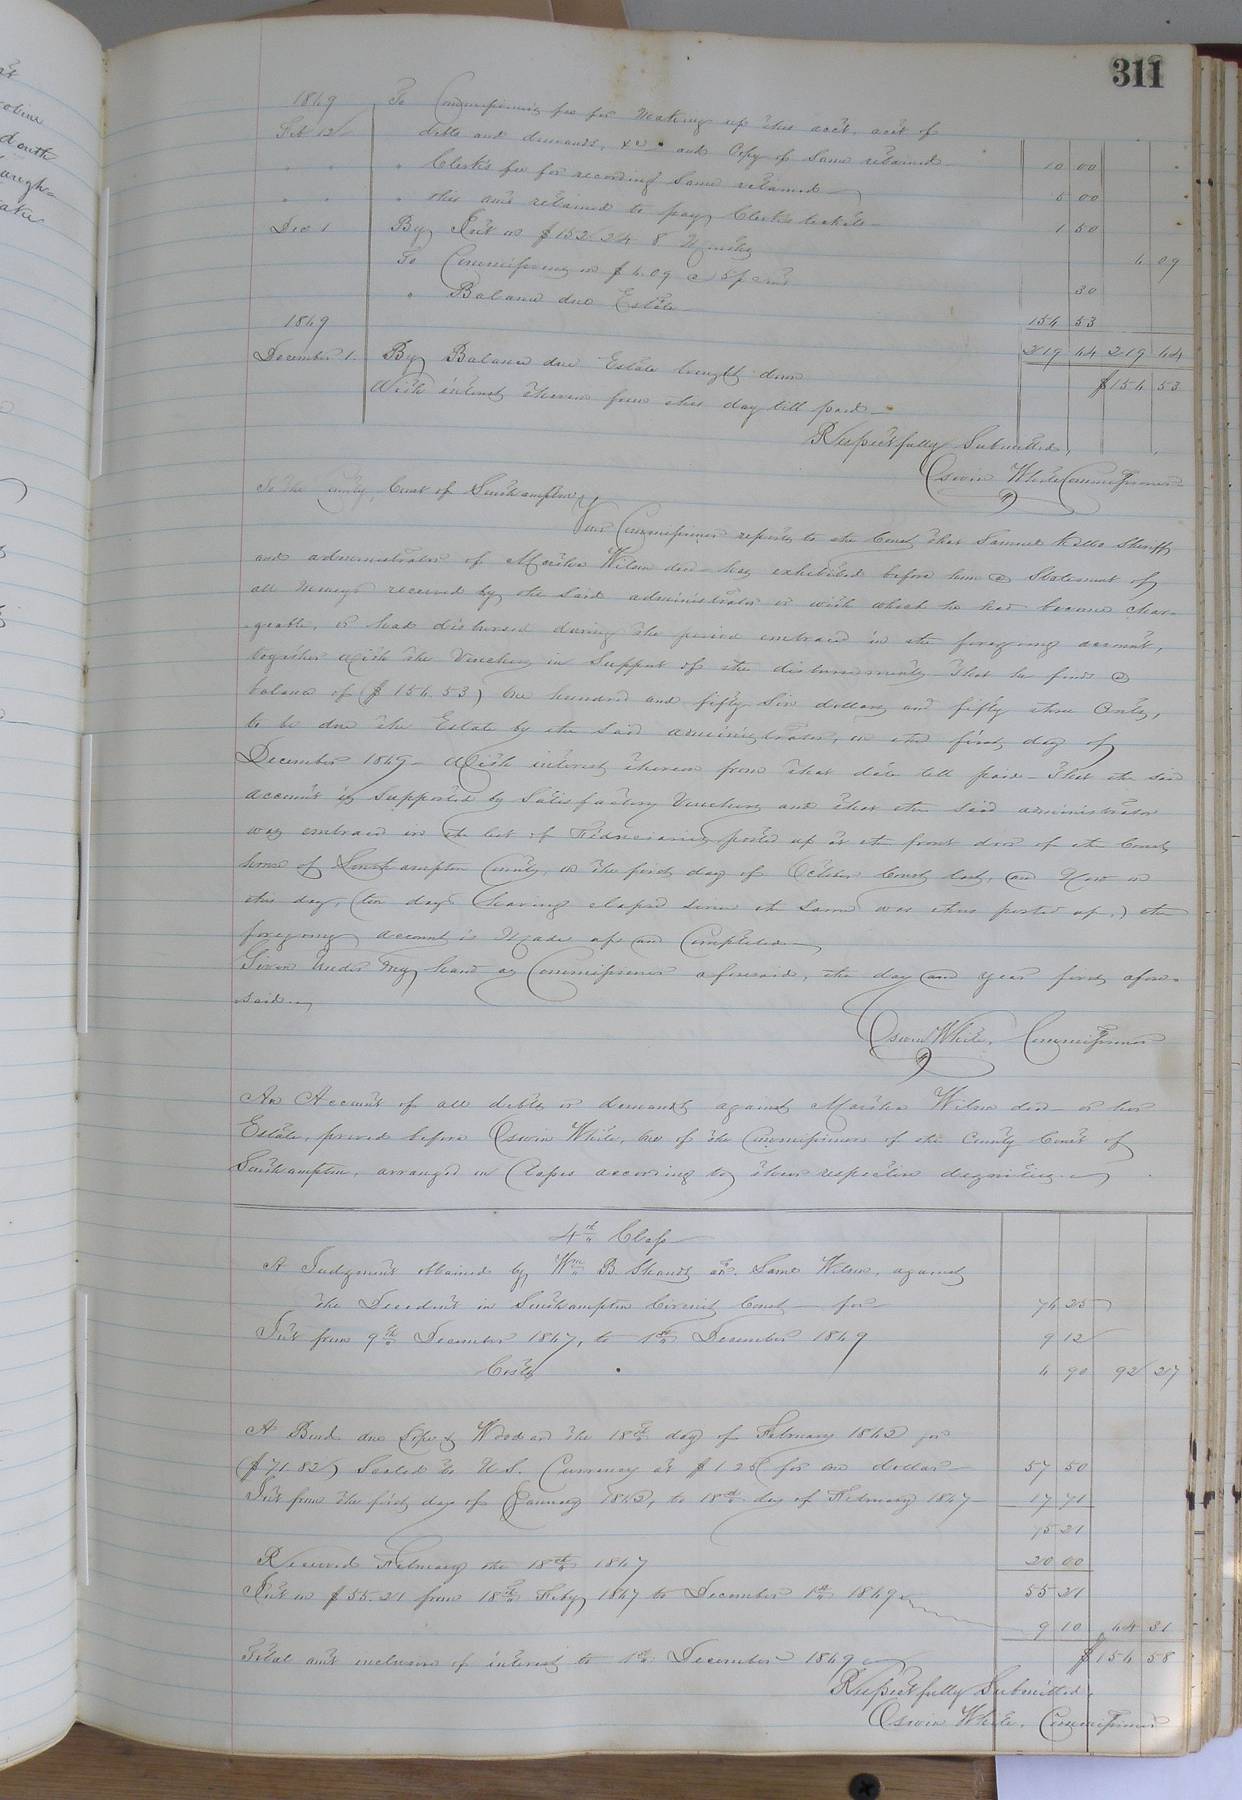 311
1849 To Commissioners fee for making up this acct. acct of
Feb 12 debts and demands, &c. and Copy of same retained 10 00
" " " Clerk's fee for recording same retained 5 00
" " " this amt retained to pay Clerk's tickets 1 50
Dec 1 By Int on $152.24 8 Months 6 09
To Commissions on $6.09 @ 5 pr cent 30
" Balance due Estate 156 53
219 44 219 44
1849
December 1. By Balance due Estate brought down $156 53
With interest thereon from this day till paid
Respectfully Submitted,
Oswin White Commissioner
To the County Court of Southampton
Your Commissioner reports to the Court that Samuel Kello Sheriff
and administrator of Martha Wilson decd has exhibited before him a Statement of
all Moneys received by the said administrator or with which he had become char-
geable, or had disbursed during the period embraced in the foregoing account,
together with the Vouchers in Support of the disbursements. That he finds a
balance of ($156.53) One hundred and fifty Six dollars and fifty three Cents,
to be due the Estate by the said administrator, on the first day of
December 1849 With interest thereon from that date till paid - That the said
account is supported by Satisfactory Vouchers and that the said administrator
was embraced in the list of Fiduciaries posted up at the front door of the Court
house of Southampton County, on the first day of October Court last, and Now on
this day, (ten days having elapsed since the same was thus posted up,) the
foregoing account is Made up and Completed
Given Under My hand as Commissioner aforesaid, the day and year first afore-
said.
Oswin White, Commissioner
An Account of all debts or demands against Martha Wilson decd or her
Estate, proved before Oswin White, One of the Commissioners of the County Court of
Southampton, arranged in Classes according to their respective dignities.
4th Class
A Judgment obtained by Wm B. Shands Saml Wilson, against
the Decedent in Southampton Circuit Court for 74 25
Int from 9th December 1847, to 1st December 1849 9 12
Costs 4 90 92 27
A Bond due Cope & Wood on the 18th day of February 1842 for
($71.82) Scaled to U.S. Currency at $1.25 for one dollar 57 50
Int from the first day of January 1842, to 18th day of February 1847 17 71
75 21
Received February the 18th 1847 20 00
Int on $55.21 from 18th Feby 1847 to December 1st 1849 55 21
9 10 64 31
Total amt inclusive of interest to 1st December 1849 $156 58
Respectfully Submitted,
Oswin White, Commissioner